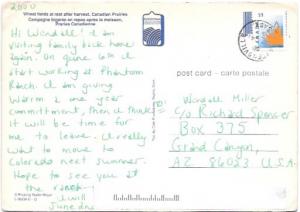 2000
Wheat fields at rest after harvest, Canadian Prairies
Campagne longeron en repos après la moisson,
Prairies Canadiennes
Hi Wendall! I am
visiting family back home
again. On June 6th I
start working at Phantom
Rach. I am giving
Warm 2 one year
commitment, then I think
it will be time for
me to leave. I really
want to move to
Colorado next summer.
Hope to see you at
the ranch
I will
June
post card - carte postale
Wendall Miller
c/o Richard Spenser
Box 375
Grand Canyon,
AZ 86023 U.S.A.